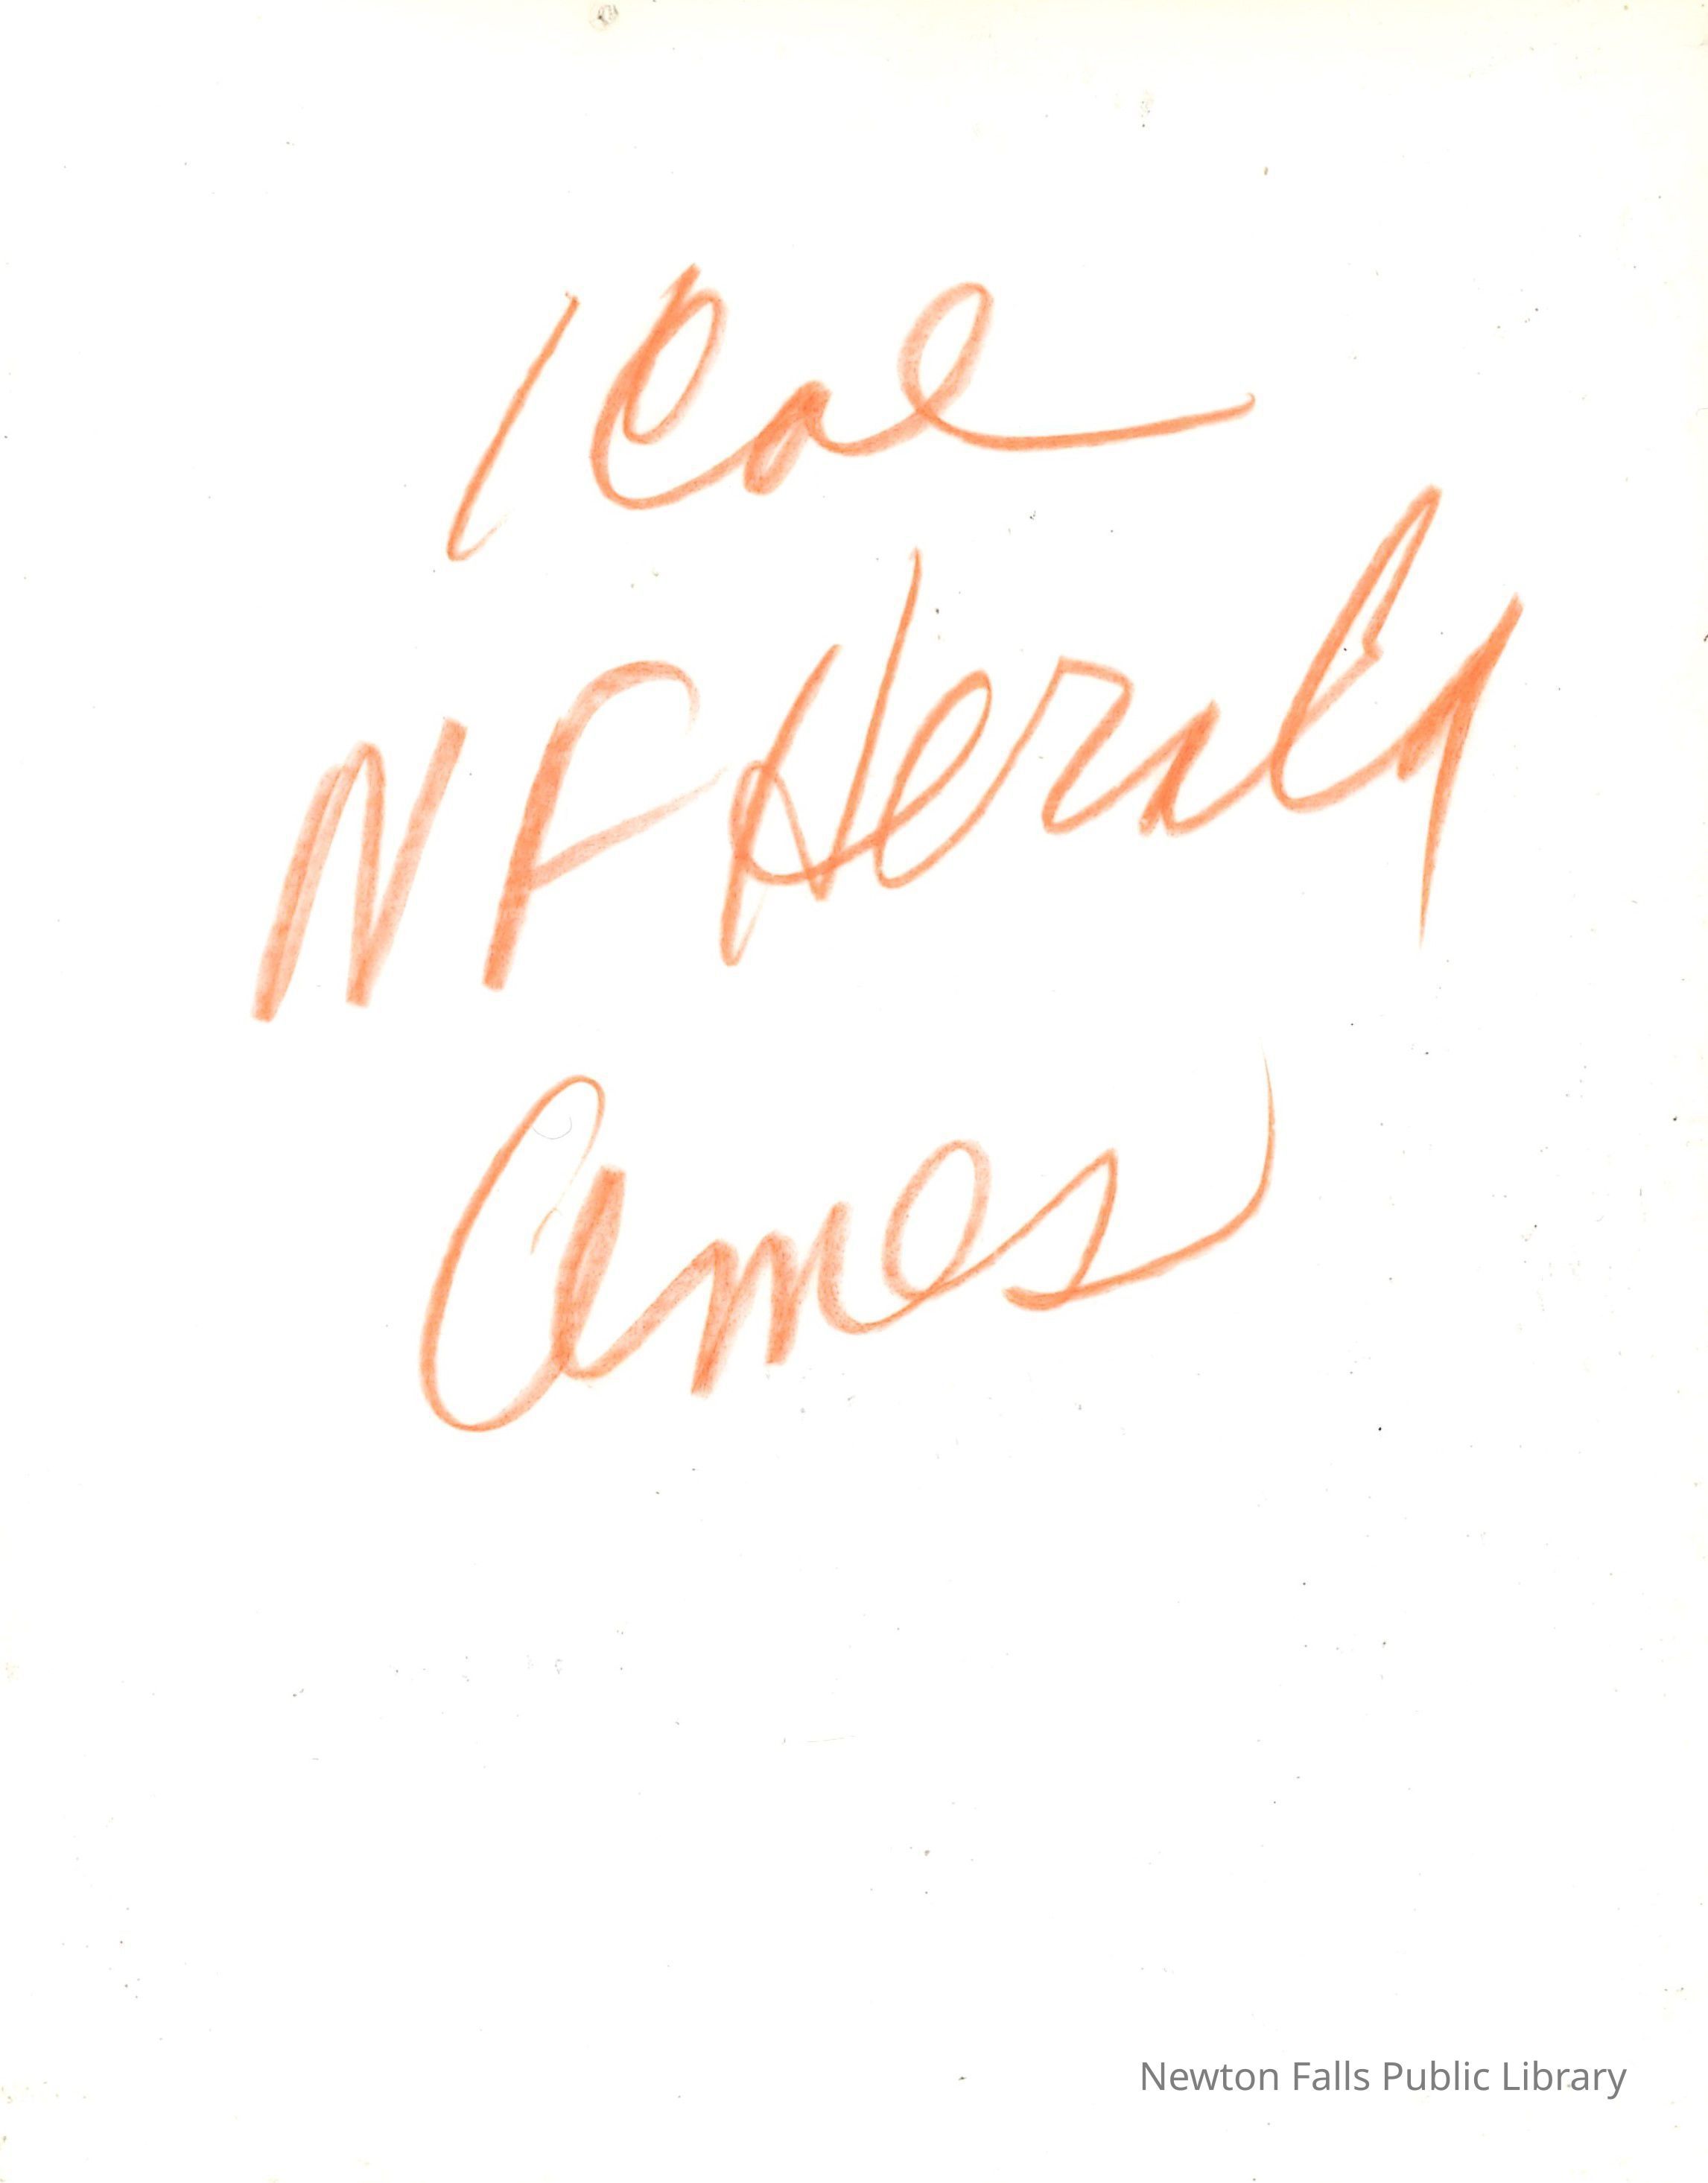 1 Col
NF Herald
Ames
Newton Falls Public Library